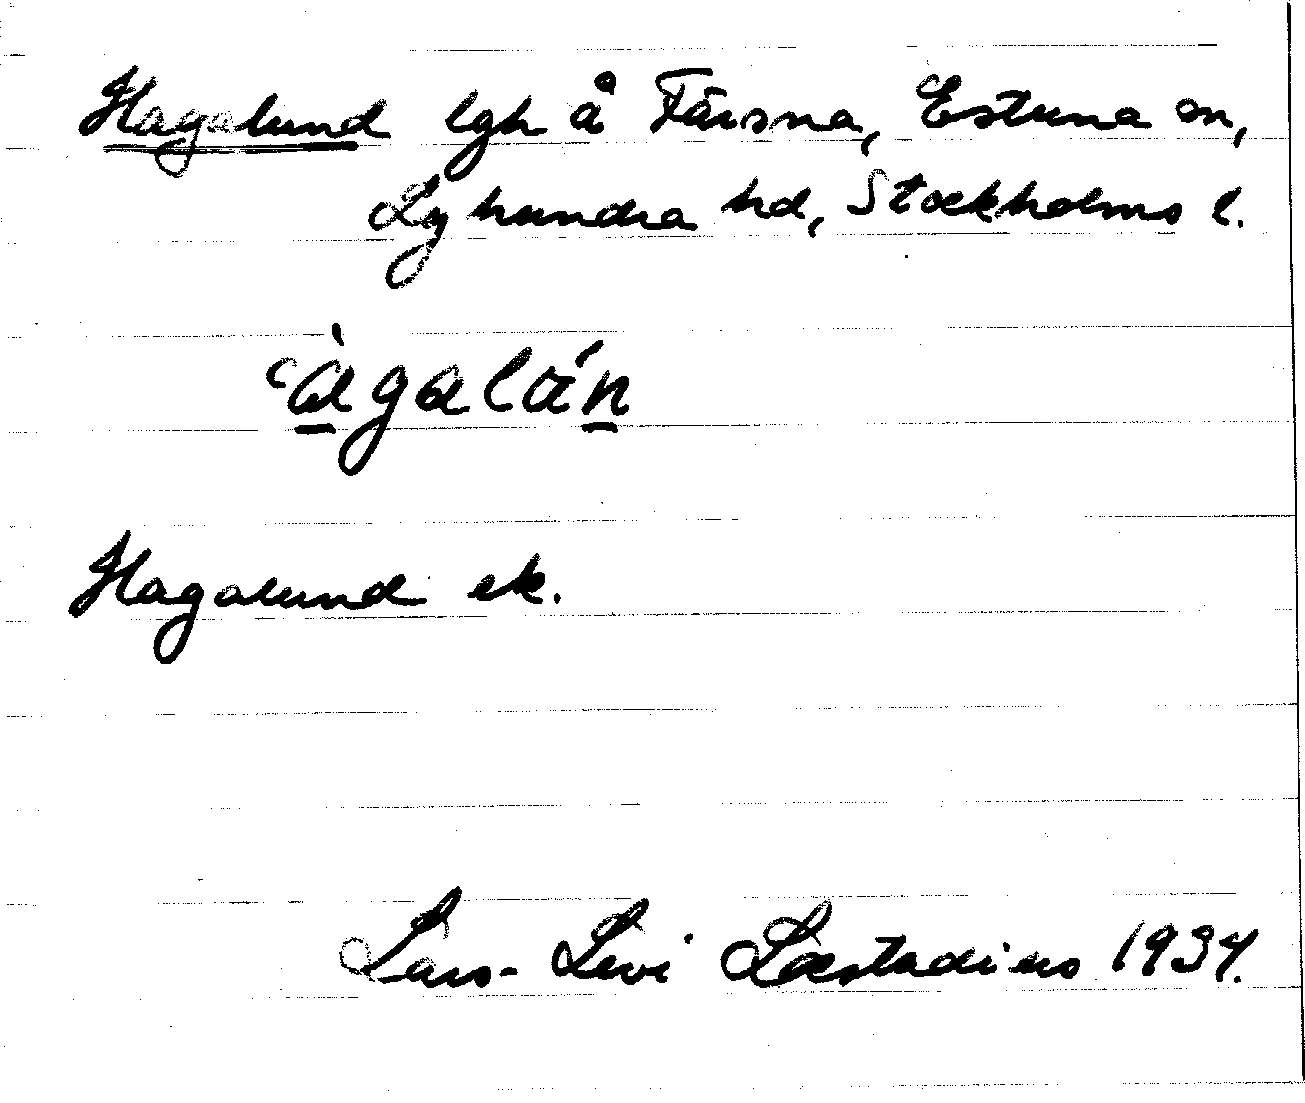 Hagalund lgh å Färsna, Estuna sn,
Lyhundra hd, Stockholms l.
Hagalund ek.
Lars-Levi Læstadius 1934.